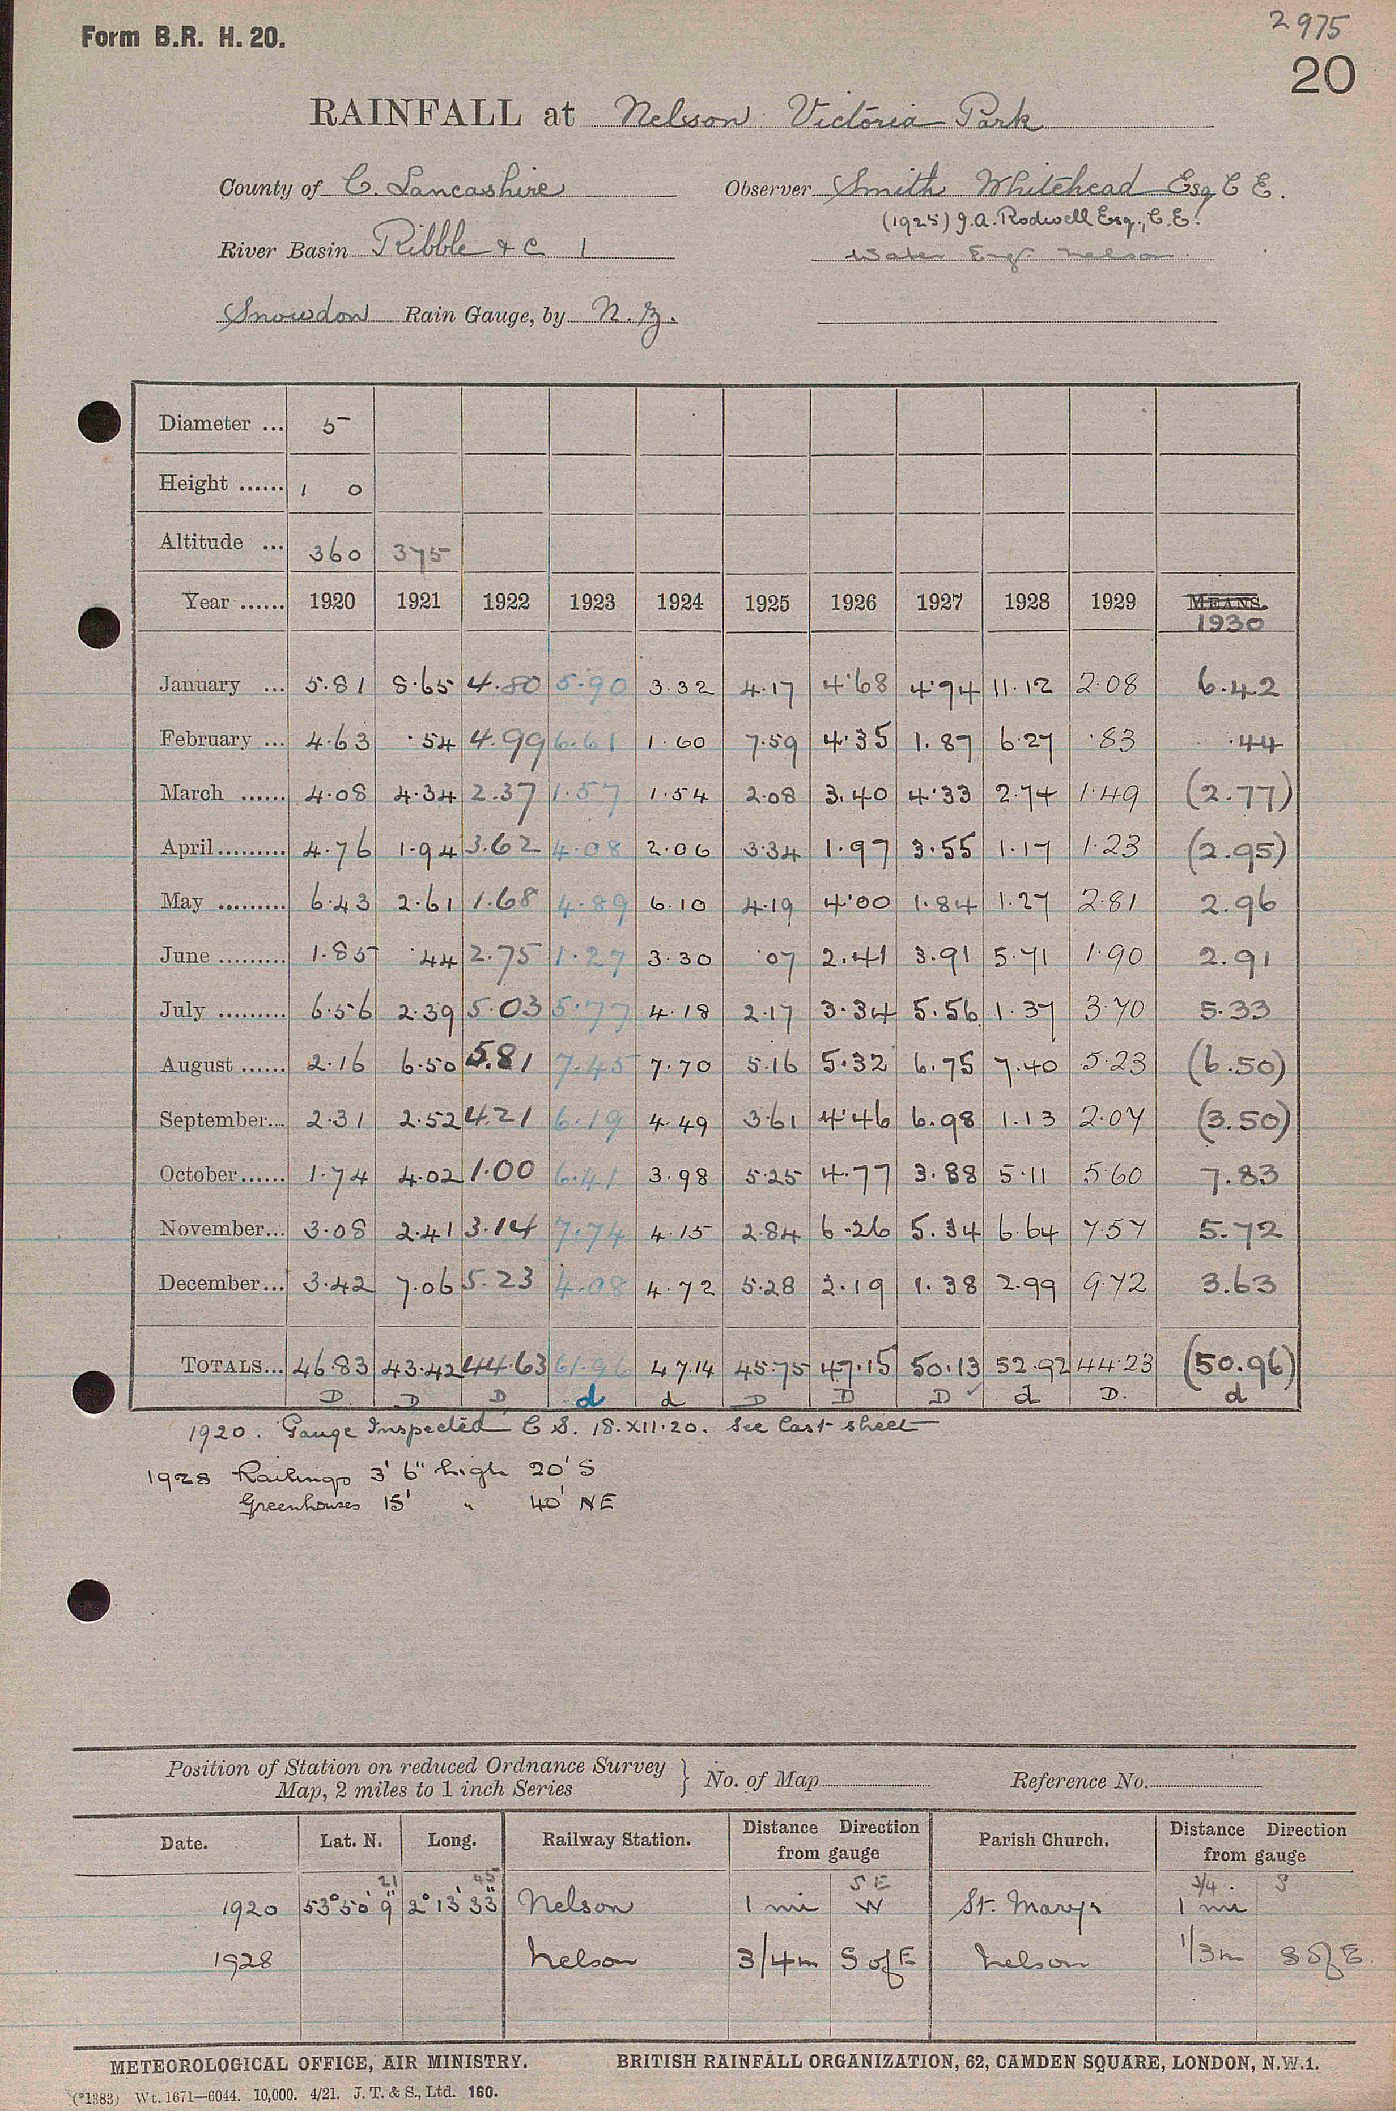 Form B.R. H. 20.
2975
20
RAINFALL at Nelson Victoria Park
County of C. Lancashire Observer Smith Whitehead Esq C E.
(1925) J.A. Rodwell Esq., C.E.
River Basin Ribble & c 1 Water Engr Nelson.
Snowdon Rain Gauge, by N. Z.
Diameter ... 5
Height ...... 1 0
Altitude ... 360 375
Year ...... 1920 1921 1922 1923 1924 1925 1926 1927 1928 1929 MEANS. 1930
January ... 5.81 8.65 4.80 5.90 3.32 4.17 4.68 4.94 11.12 2.08 6.42
February ... 4.63 .54 4.99 6.61 1.60 7.59 4.35 1.87 6.27 .83 .44
March ...... 4.08 4.34 2.37 1.57 1.54 2.08 3.40 4.33 2.74 1.49 (2.77)
April ......... 4.76 1.94 3.62 4.08 2.06 3.34 1.97 3.55 1.17 1.23 (2.95)
May ......... 6.43 2.61 1.68 4.89 6.10 4.19 4.00 1.84 1.27 2.81 2.96
June ......... 1.85 .44 2.75 1.27 3.30 .07 2.41 3.91 5.71 1.90 2.91
July ......... 6.56 2.39 5.03 5.77 4.18 2.17 3.34 5.56 1.37 3.70 5.33
August ...... 2.16 6.50 5.81 7.45 7.70 5.16 5.32 6.75 7.40 5.23 (6.50)
September... 2.31 2.52 4.21 6.19 4.49 3.61 4.46 6.98 1.13 2.07 (3.50)
October...... 1.74 4.02 1.00 6.41 3.98 5.25 4.77 3.88 5.11 5.60 7.83
November... 3.08 2.41 3.14 7.74 4.15 2.84 6.26 5.34 6.64 7.57 5.72
December... 3.42 7.06 5.23 4.08 4.72 5.28 2.19 1.38 2.99 9.72 3.63
TOTALS... 46.83 43.42 44.63 61.96 47.14 45.75 47.15 50.13 52.92 44.23 (50.96)
D D D d d D D D ✓ d D. d
1920. Gauge Inspected C S. 18.XII.20. See last sheet
1928 Railings 3' 6" high 20' S
Greenhouses 15' " 40' NE
Position of Station on reduced Ordnance Survey Map, 2 miles to 1 inch Series } No. of Map Reference No.
Date. Lat. N. Long. Railway Station. Distance Direction from gauge Parish Church. Distance Direction from gauge
21 45 S E 3/4. S
1920 53° 50' 9" 2° 13' 33" Nelson 1 mi W St. Marys 1 mi
1928 Nelson 3/4m S of E Nelson 1/3m S of E.
METEOROLOGICAL OFFICE, AIR MINISTRY. BRITISH RAINFALL ORGANIZATION, 62, CAMDEN SQUARE, LONDON, N.W.1.
(*1383) Wt. 1671—6044. 10,000. 4/21. J. T. & S., Ltd. 160.